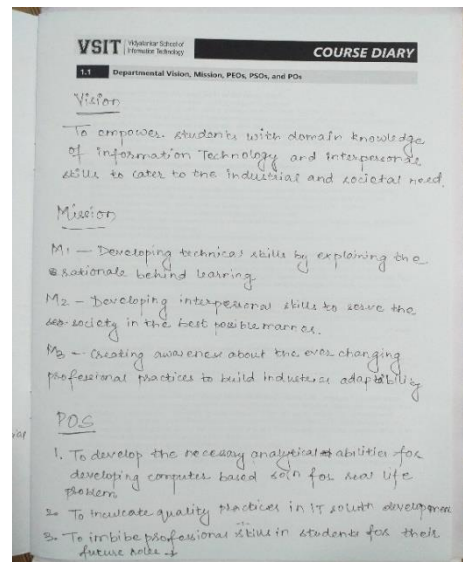 VSIT Vidyalankar School of
Information Technology
COURSE DIARY
1.1 Departmental Vision, Mission, PEOs, PSOs, and POs
Vision
To empower students with domain knowledge
of information Technology and interpersonal
skills to cater to the industrial and societal need.
Mission
M1 — Developing technical skills by explaining the
rationale behind learning
M2 - Developing interpersonal skills to serve the
society in the best possible manner.
M3 - Creating awareness about the ever changing
professional practices to build industrial adaptability
POS
1. To develop the necessary analytical abilities for
developing computer based soln for real life
problem
2. To inculcate quality practices in IT development
3. To imbibe professional skills in students for their
future roles